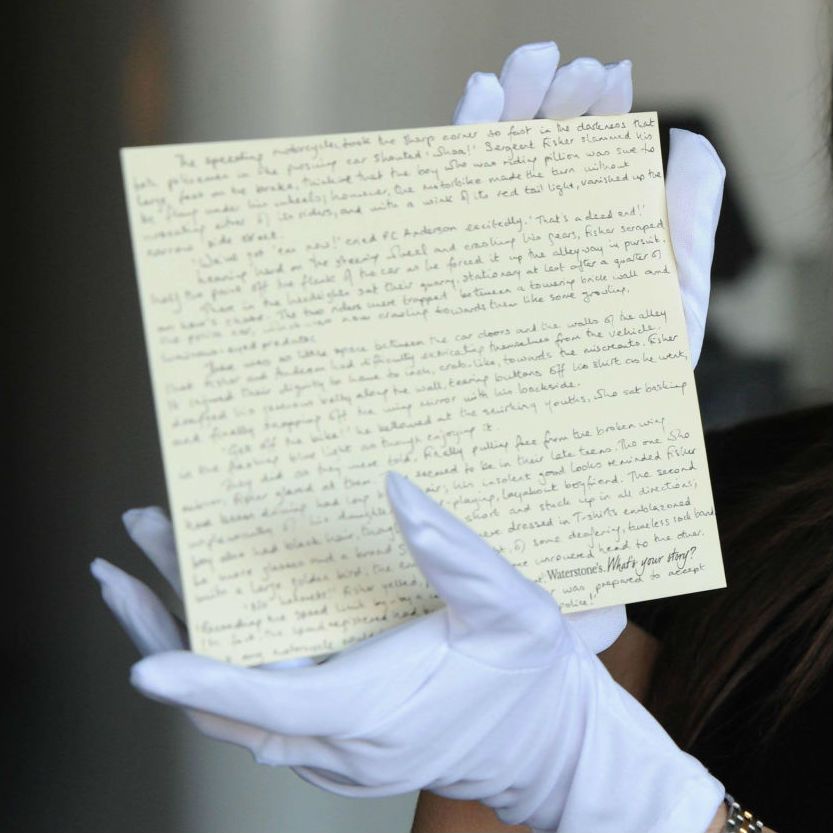 The speeding motorcycle took the sharp corner so fast in the darkness that
both policemen in the pursuing car shouted 'Whoa!' Sergeant Fisher slammed his
large foot on the brake, thinking that the boy who was riding pillion was sure to
be flung under his wheels; however, the motorbike made the turn without
unseating either of its riders, and with a wink of its red tail light, vanished up the
narrow side street.
'We've got 'em now!' cried PC Anderson excitedly. 'That's a dead end!'
Leaning hard on the steering wheel and crashing his gears, Fisher scraped
half the paint off the flank of the car as he forced it up the alleyway in pursuit.
There in the headlights sat their quarry, stationary at last after a quarter of
an hour's chase. The two riders were trapped between a towering brick wall and
the police car, which was now crawling towards them like some growling,
luminous-eyed predator.
There was so little space between the car doors and the walls of the alley
that Fisher and Anderson had difficulty extricating themselves from the vehicle.
It injured their dignity to have to inch, crab-like, towards the miscreants. Fisher
dragged his generous belly along the wall, tearing buttons off his shirt as he went,
and finally snapping off the wing mirror with his backside.
'Get off the bike!' he bellowed at the smirking youths, who sat basking
in the flashing blue light as though enjoying it.
They did as they were told. Finally pulling free from the broken wing
mirror, Fisher glared at them. seemed to be in their late teens. The one who
had been driving had long bl air; his insolent good looks reminded Fisher
unpleasantly of his daughte -playing, layabout boyfriend. The second
boy also had black hair, thoug short and stuck up in all directions;
he wore glasses and a broad were dressed in T-shirts emblazoned
with a large golden bird; the em of some deafening, tuneless rock band.
'No helmets!' Fisher yelled, p one uncovered head to the other.
'Exceeding the speed limit by by a was prepared to accept
(In fact, the speed registered had police!'
any motorcycle
Waterstone's. What's your story?